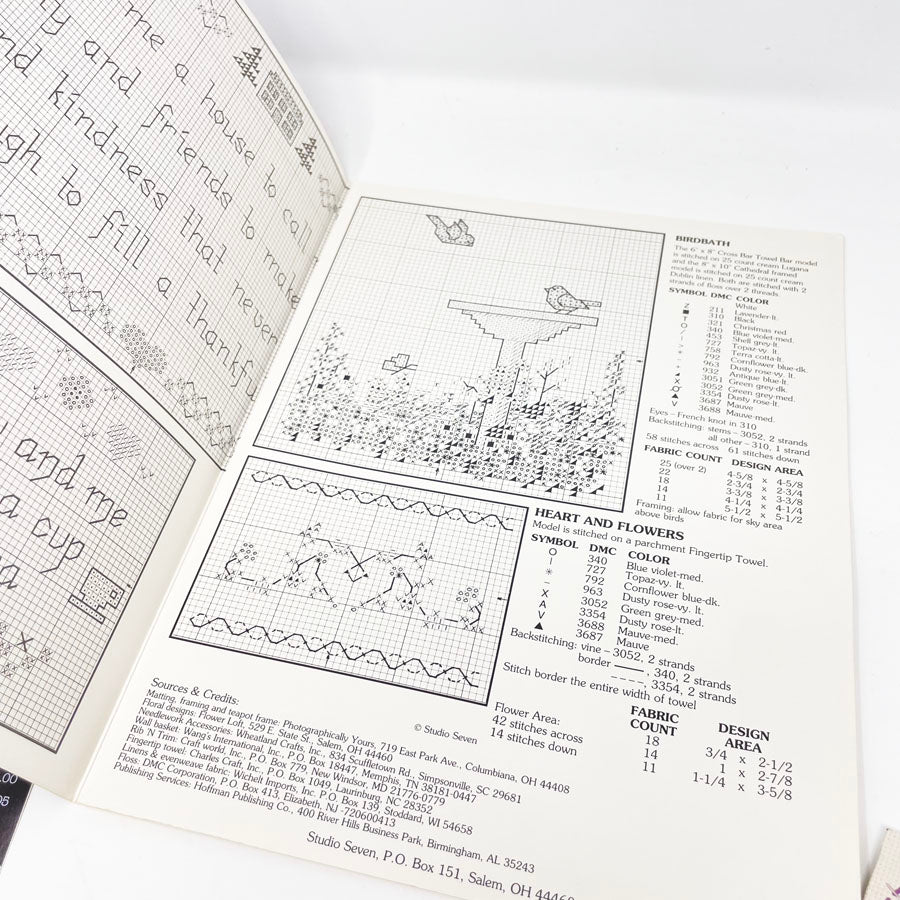 me
a house to call
and friends to make
kindness that never
to fill
a than
and me
a cup
BIRDBATH
The 6" x 8" Cross Bar Towel Bar model
is stitched on 25 count cream Lugana
and the 8" x 10" Cathedral framed
model is stitched on 25 count cream
Dublin linen. Both are stitched with 2
strands of floss over 2 threads.
SYMBOL DMC COLOR
White
Z 211 Lavender-lt.
■ 310 Black
T 321 Christmas red
O 340 Blue violet-med.
/ 453 Shell grey-lt.
727 Topaz-vy. lt.
758 Terra cotta-lt.
792 Cornflower blue-dk.
963 Dusty rose-vy. lt.
932 Antique blue-lt.
3051 Green grey-dk.
X 3052 Green grey-med.
3354 Dusty rose-lt.
▲ 3687 Mauve
V 3688 Mauve-med.
Eyes – French knot in 310
Backstitching: stems – 3052, 2 strands
all other – 310, 1 strand
58 stitches across 61 stitches down
FABRIC COUNT DESIGN AREA
25 (over 2) 4-5/8 x 4-5/8
22 2-3/4 x 2-3/4
18 3-3/8 x 3-3/8
14 4-1/4 x 4-1/4
11 5-1/2 x 5-1/2
Framing: allow fabric for sky area
above birds
HEART AND FLOWERS
Model is stitched on a parchment Fingertip Towel.
SYMBOL DMC COLOR
O 340 Blue violet-med.
I 727 Topaz-vy. lt.
* 792 Cornflower blue-dk.
– 963 Dusty rose-vy. lt.
X 3052 Green grey-med.
A 3354 Dusty rose-lt.
V 3688 Mauve-med.
▲ 3687 Mauve
Backstitching: vine – 3052, 2 strands
border ——, 340, 2 strands
– – – –, 3354, 2 strands
Stitch border the entire width of towel
Flower Area:
42 stitches across
14 stitches down
FABRIC COUNT DESIGN AREA
18 3/4 x 2-1/2
14 1 x 2-7/8
11 1-1/4 x 3-5/8
© Studio Seven
Sources & Credits:
Matting, framing and teapot frame: Photographically Yours, 719 East Park Ave., Columbiana, OH 44408
Floral designs: Flower Loft, 529 E. State St., Salem, OH 44460
Needlework Accessories: Wheatland Crafts, Inc., 834 Scuffletown Rd., Simpsonville, SC 29681
Wall basket: Wang's International, Inc., P.O. Box 18447, Memphis, TN 38181-0447
Rib 'N Trim: Craft world, Inc., P.O. Box 779, New Windsor, MD 21776-0779
Fingertip towel: Charles Craft, Inc., P.O. Box 1049, Laurinburg, NC 28352
Linens & evenweave fabric: Wichelt Imports, Inc. P.O. Box 139, Stoddard, WI 54658
Floss: DMC Corporation, P.O. Box 413, Elizabeth, NJ -720600413
Publishing Services: Hoffman Publishing Co., 400 River Hills Business Park, Birmingham, AL 35243
Studio Seven, P.O. Box 151, Salem, OH 44460